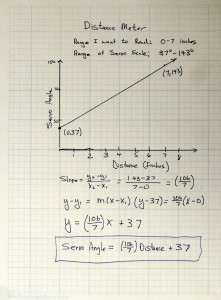 Distance Meter
Range I want to Read: 0-7 inches
Range of Servo Scale: 37°-143°
Servo Angle
(7,143)
(0,37)
1 2 3 4 5 6 7 8
Distance (Inches)
Slope = y₂-y₁/x₂-x₁ = 143-37/7-0 = (106/7)
y-y₁ = m(x-x₁) (y-37) = 106/7(x-0)
y = (106/7) x + 37
Servo Angle = (106/7) Distance + 37